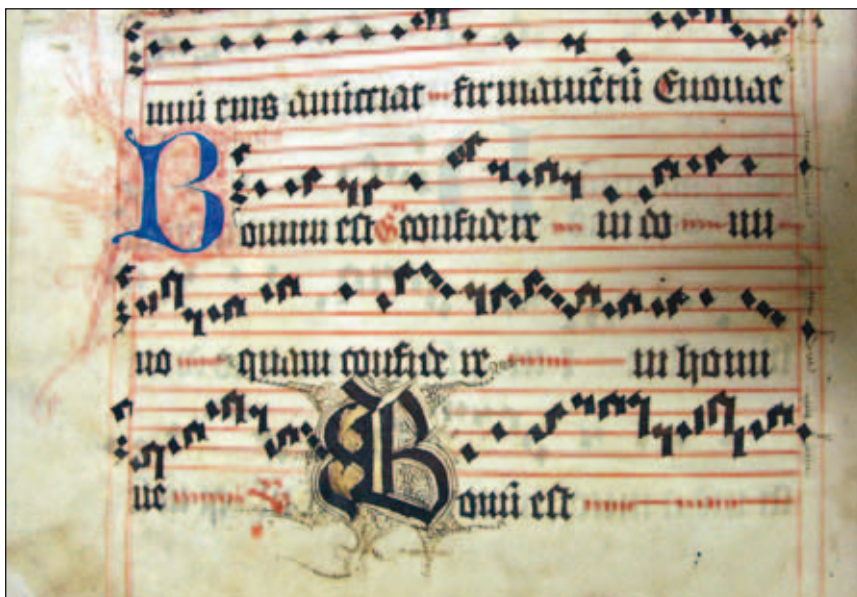 nuū eius anūciat firmamētū Euouae
Bonum est confidere in do mi
no quam confide re in homi
ne Bonū est